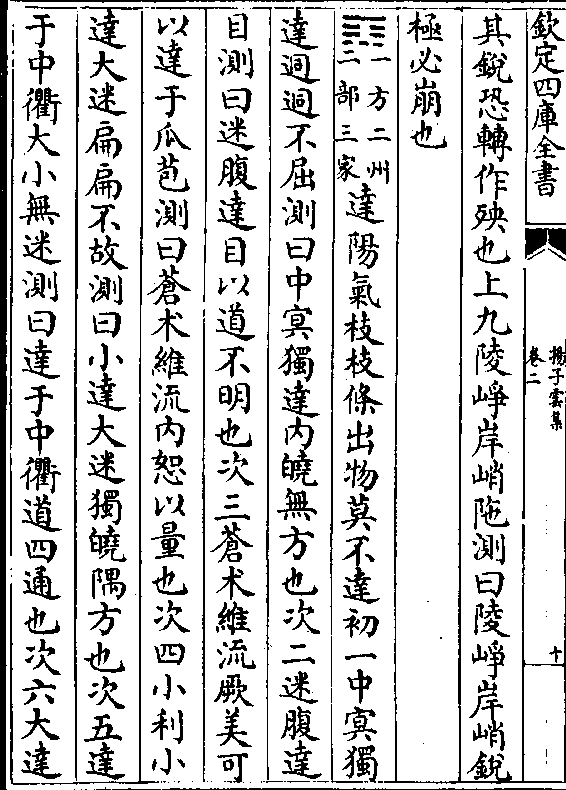 欽定四庫全書
揚子雲集
卷二
十
其銳恐轉作殃也上九陵崢岸峭陁測曰陵崢岸峭銳
極必崩也
一方二州
三部三家
達陽氣枝枝條出物莫不達初一中㝠獨
達迵迵不屈測曰中㝠獨達内曉無方也次二迷腹達
目測曰迷腹達目以道不明也次三蒼木維流厥美可
以達于瓜苞測曰蒼木維流内恕以量也次四小利小
達大迷扁扁不故測曰小達大迷獨曉隅方也次五達
于中衢大小無迷測曰達于中衢道四通也次六大達